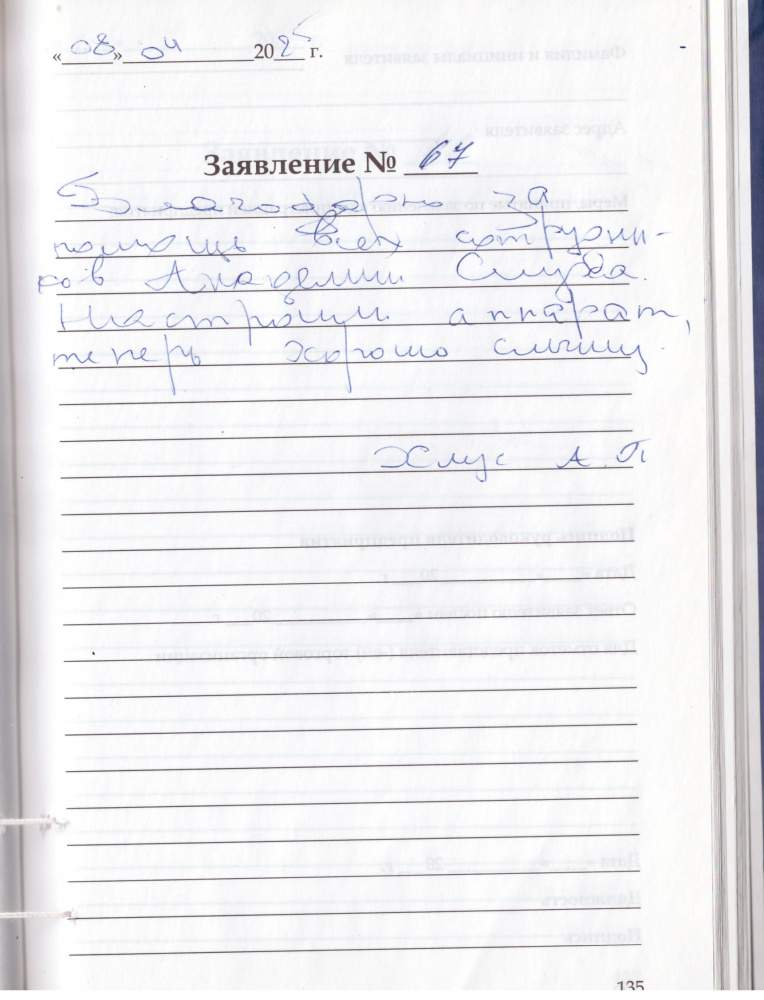 «08» 04 2025 г.
Заявление № 67
Благодарю за
помощь всех сотрудни-
ков Академии Слуха.
Настроили аппарат,
теперь хорошо слышу.
Хлус А.П
135